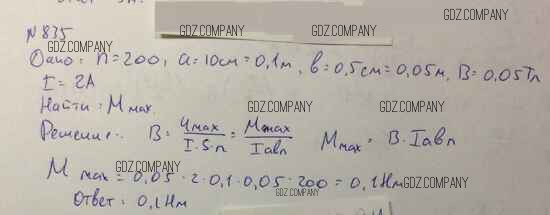 GDZ.COMPANY
N 835 GDZ.COMPANY
GDZ.COMPANY
Дано: n = 200, a = 10см = 0,1м, b = 0,5см = 0,05м, B = 0,05Тл
GDZ.COMPANY
I = 2А
Найти: Mmax.
GDZ.COMPANY GDZ.COMPANY
Решение: B = Mmax / I·S·n = Mmax / Iabn Mmax = B·Iabn
GDZ.COMPANY
Mmax = 0,05 · 2 · 0,1 · 0,05 · 200 = 0,1Нм GDZ.COMPANY
GDZ.COMPANY
Ответ: 0,1Нм